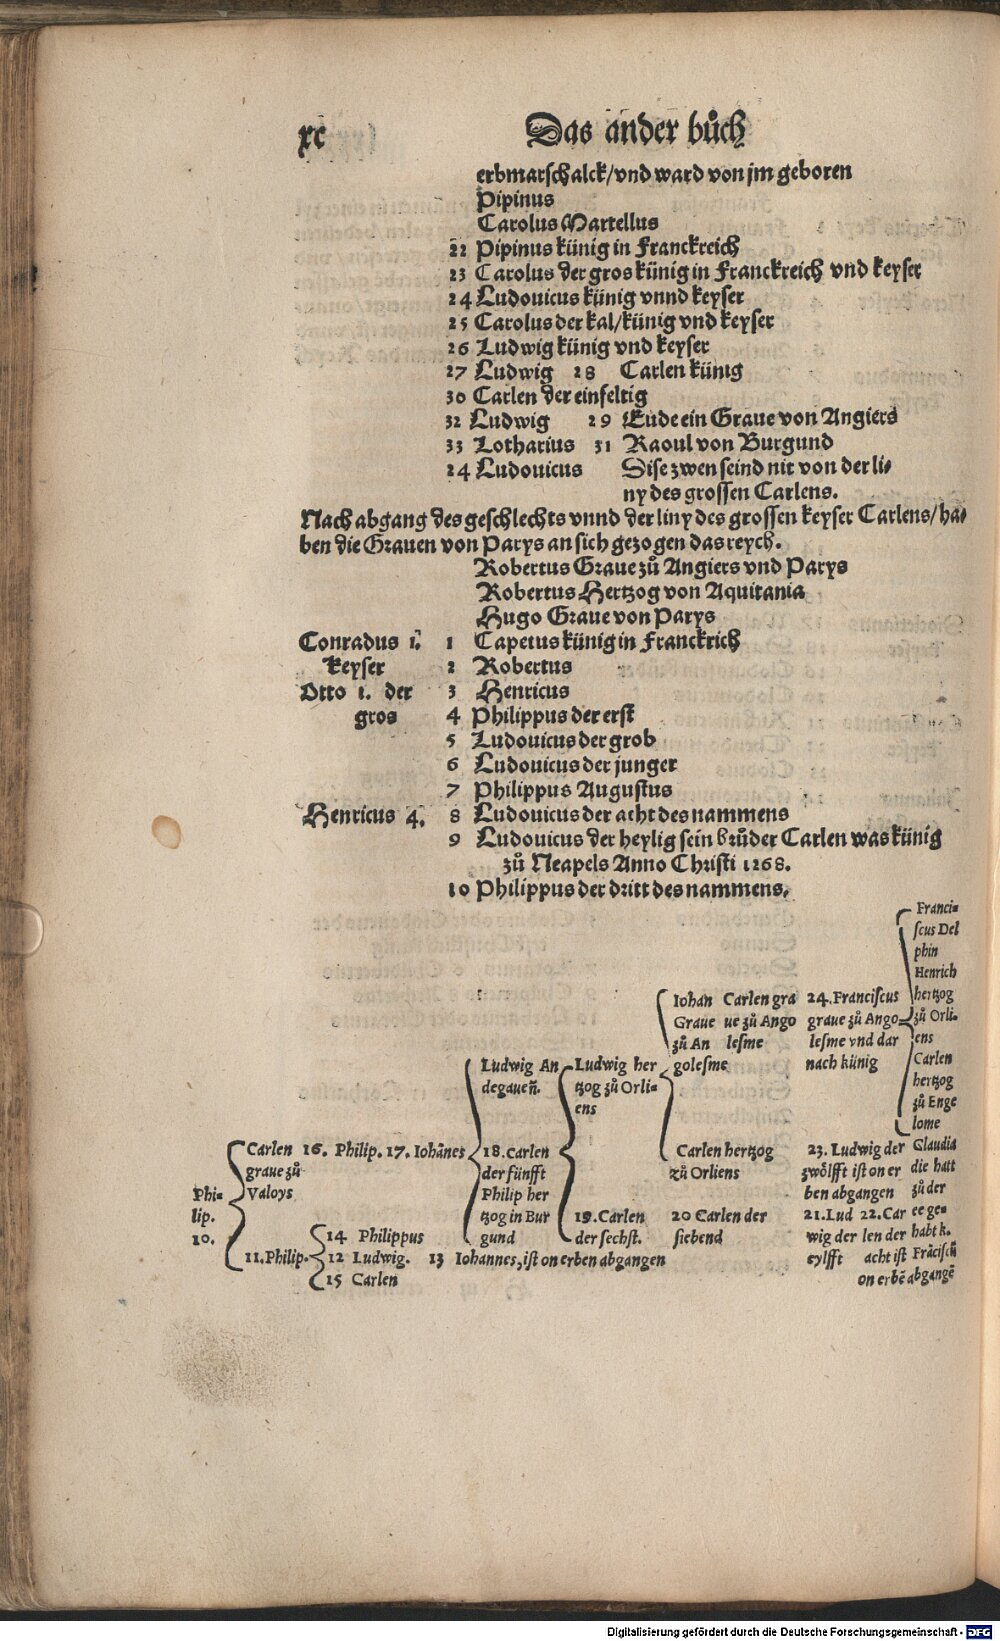 xc Das ander bůch
erbmarschalck/vnd ward von jm geboren
Pipinus
Carolus Martellus
22 Pipinus künig in Franckreich
23 Carolus der gros künig in Franckreich vnd keyser
24 Ludouicus künig vnnd keyser
25 Carolus der kal/künig vnd keyser
26 Ludwig künig vnd keyser
27 Ludwig 28 Carlen künig
30 Carlen der einfeltig
32 Ludwig 29 Eude ein Graue von Angiers
33 Lotharius 31 Raoul von Burgund
24 Ludouicus Dise zwen seind nit von der li⸗
ny des grossen Carlens.
Nach abgang des geschlechts vnnd der liny des grossen keyser Carlens/ha⸗
ben die Grauen von Parys an sich gezogen das reych.
Robertus Graue zů Angiers vnd Parys
Robertus Hertzog von Aquitania
Hugo Graue von Parys
Conradus 1. 1 Capetus künig in Franckrich
keyser 2 Robertus
Otto 1. der 3 Henricus
gros 4 Philippus der erst
5 Ludouicus der grob
6 Ludouicus der junger
7 Philippus Augustus
Henricus 4. 8 Ludouicus der acht des nammens
9 Ludouicus der heylig sein brůder Carlen was künig
zů Neapels Anno Christi 1268.
10 Philippus der dritt des nammens.
Franci⸗
scus Del
phin
Henrich
hertzog
zů Orli⸗
ens
Carlen
hertzog
zů Enge
lome
Iohan Carlen gra 24. Franciscus
Graue ue zů Ango graue zů Ango⸗
zů An lesme lesme vnd dar
golesme nach künig
Ludwig An Ludwig her
degaueñ. tzog zů Orli⸗
ens
Carlen 16. Philip. 17. Iohãnes 18. Carlen Carlen hertzog 23. Ludwig der Glaudia
graue zů der fünfft zů Orliens zwölfft ist on er die hatt
Phi⸗ Valoys Philip her ben abgangen zů der
lip. tzog in Bur 19. Carlen 20 Carlen der 21. Lud 22. Car ee ge⸗
10. 14 Philippus gund der sechst. siebend wig der len der habt k.
11. Philip. 12 Ludwig. 13 Iohannes, ist on erben abgangen eylfft acht ist Frãcisc᷒
15 Carlen on erbẽ abgangẽ
Digitalisierung gefördert durch die Deutsche Forschungsgemeinschaft - DFG